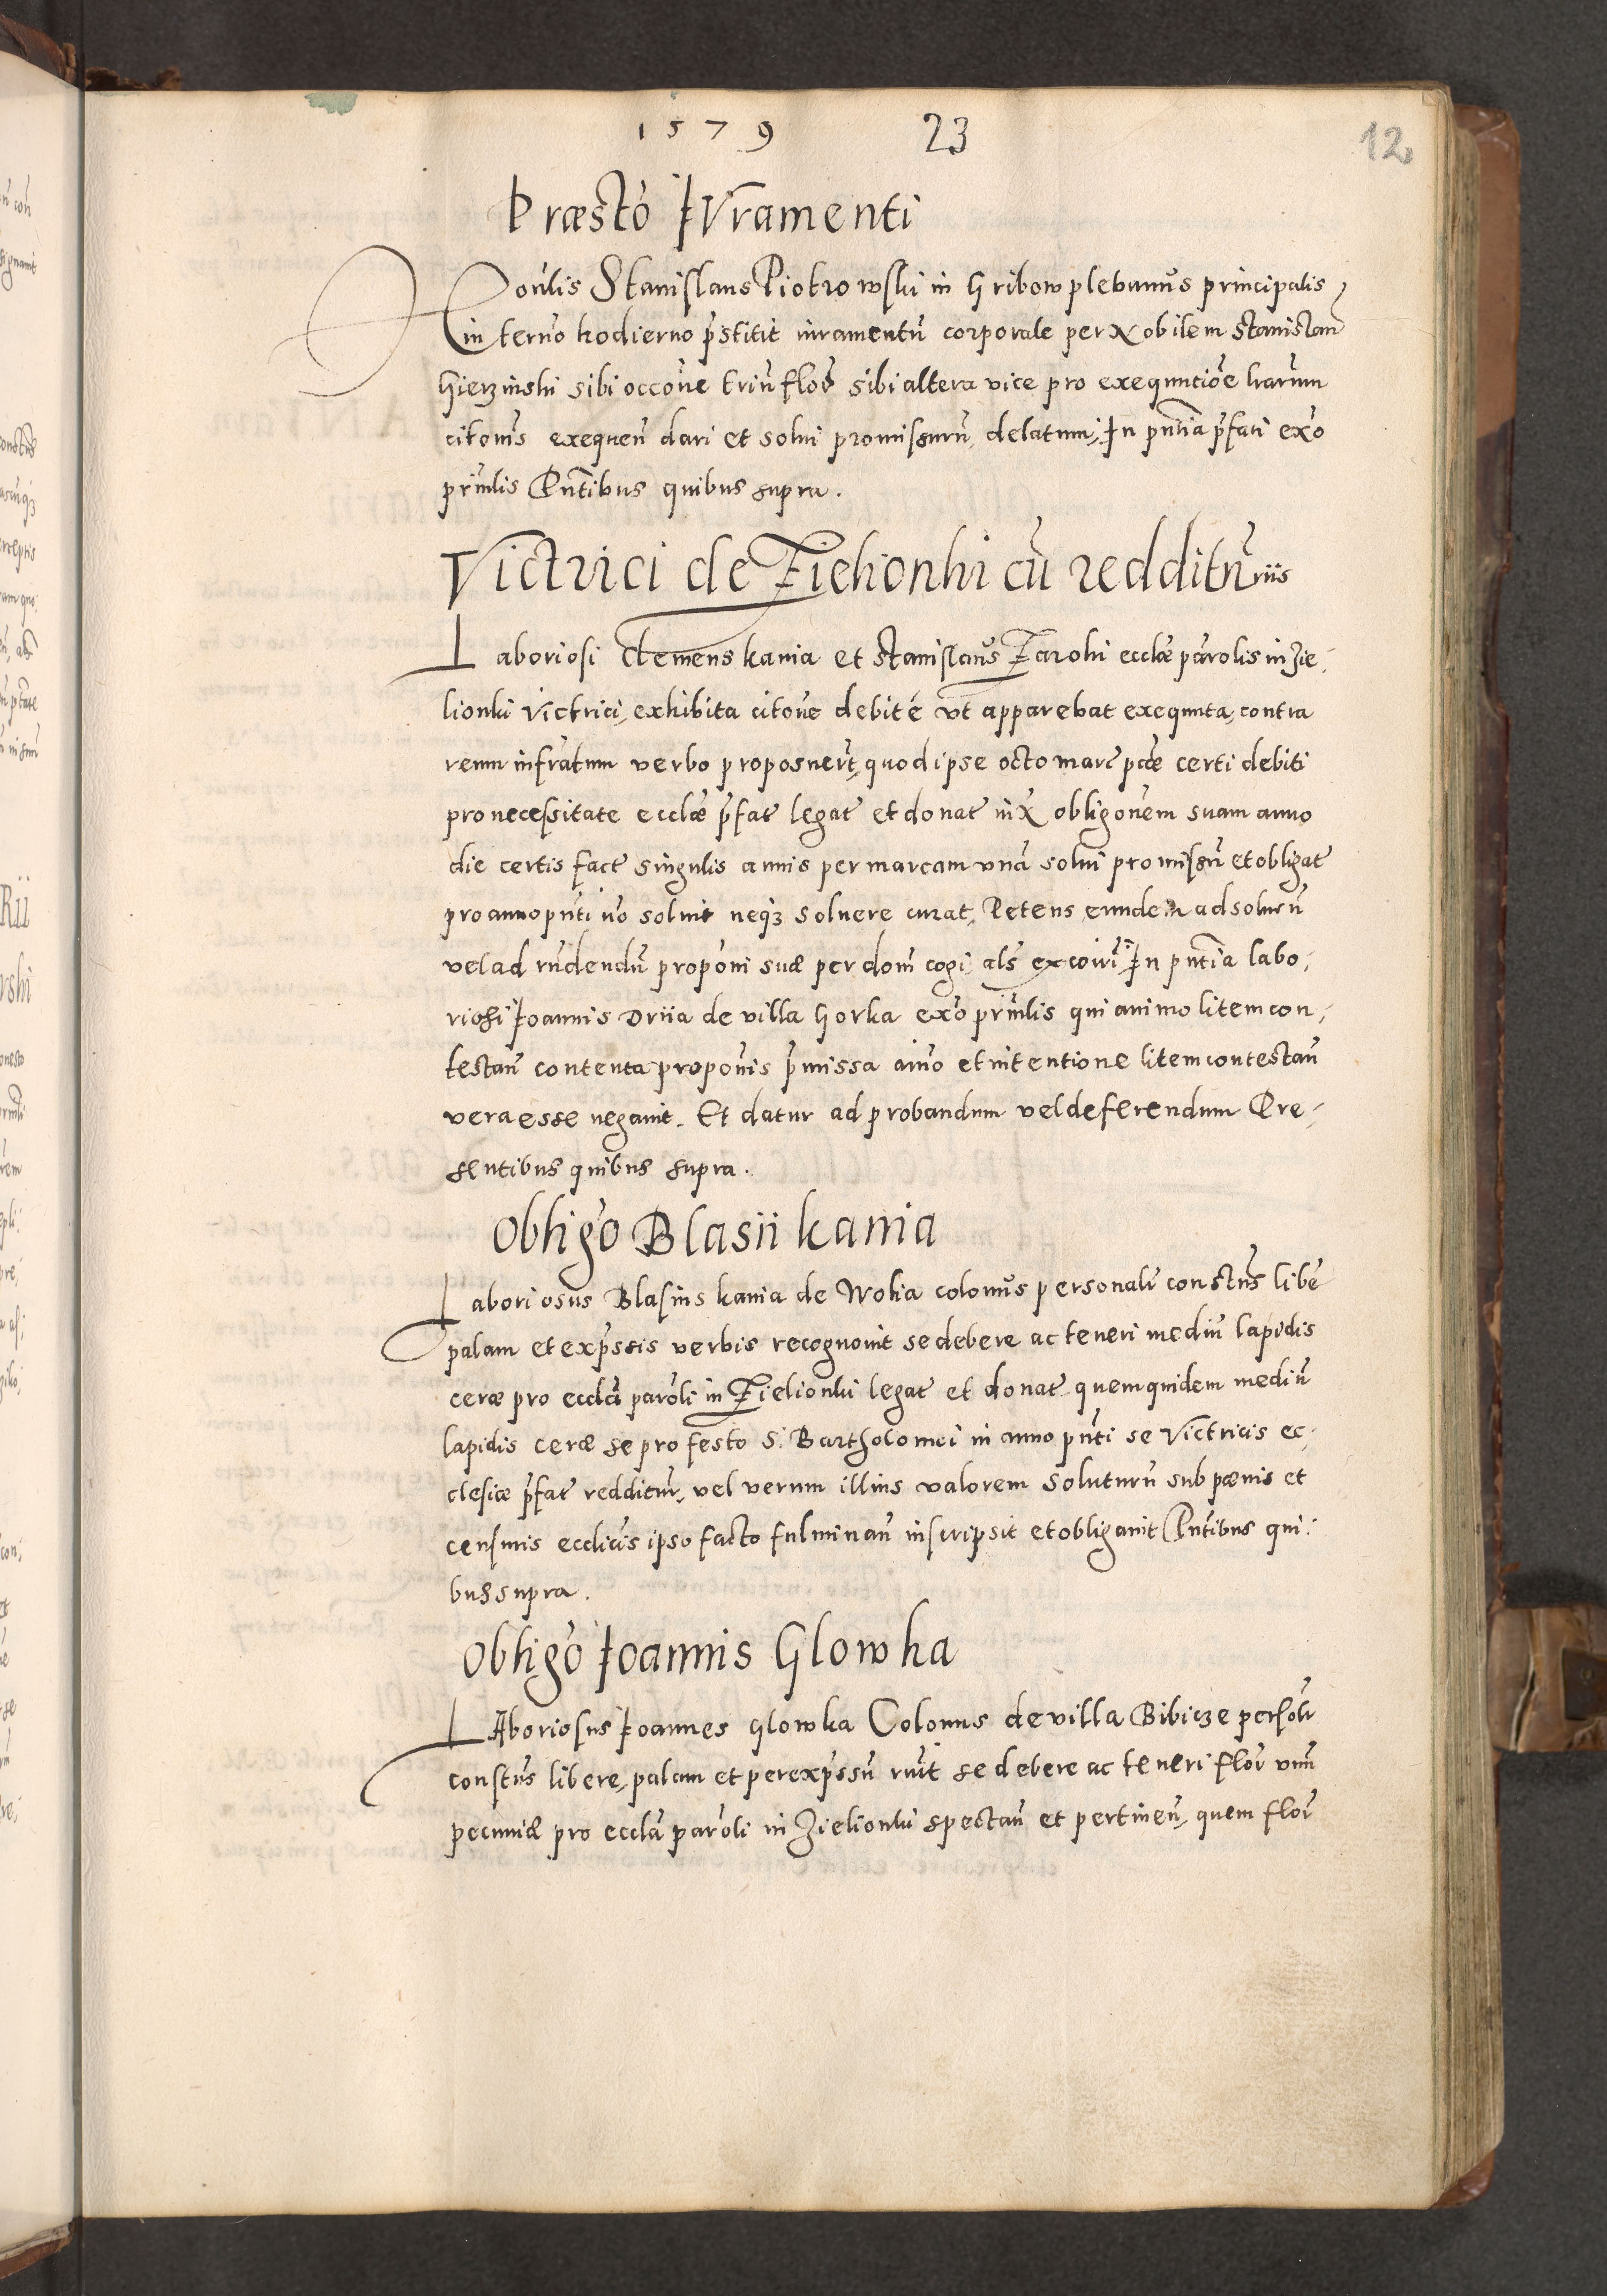 1579 23 12
Præstō IVramenti
Honīlis Stanislaus Piotrowski in Gribow plebanus principalis
in termō hodierno p̄stitit iuramentū corporale per Nobilem Stanislaū
Gierzinski sibi occōne triū flor̄ sibi altera vice pro exequutiōe harum
citōnis exequeñ dari et solui promissurū, delatum, In pn̄tia p̄fati exō
prin̄lis Pn̄tibus quibus supra.
Victrici de Zielionki cū redditūriis
Laboriosi Clemens kania et Stanislaus Zaroki ecclæ parōlis in Zie-
lionki Victrici, exhibita citōne debitè vt apparebat exequuta, contra
reum infrātum verbo proposuerūt, quod ipse octo marc̄ pæ certi debiti
pro necessitate ecclæ p̄fat̄ legat̄ et donat̄ iux obligōnem suam anno
die certis fact̄ singulis annis per marcam vnā solui promissū et obligat̄
pro anno pn̄ti nō soluit neq̢ soluere curat, Petens eundem ad soluēn
vel ad rn̄dendū propōni suæ per dom̄ cogi, als̄ excōiri In pn̄tia labo-
riosi Ioannis Driia de villa Gorka exō prin̄lis qui animo litem con-
testañ contenta propōnis p̄missa aīno et intentione litem contestañ
vera esse negauit. Et datur ad probandum vel deferendum Pre-
sentibus quibus supra.
Obligō Blasii kania
Laboriosus Blasius kania de Wolia colonus personalr̄ constūs libē
palam et exp̄ssis verbis recognouit se debere ac teneri mediū lapidis
ceræ pro ecclā parōli in Zielionki legat̄ et donat̄ quemquidem mediū
lapidis ceræ se pro festo S. Bartholomei in anno pn̄ti se Victricis ec-
clesiæ p̄fat̄ redditur̄, vel verum illius valorem soluturū sub pœnis et
censuris ecclīcis ipso facto fulminañ inscripsit et obligauit Pn̄tibus qui-
bus supra.
Obligō Ioannis Glowka
LAboriosus Ioannes Glowka Colonus de villa Bibicze persōlr
constūs libere, palam et per exp̄ssū rn̄uit se debere ac teneri flor̄ vnū
pecuniæ pro ecclā parōli in Zielionki spectañ et pertineñ, quem flor̄